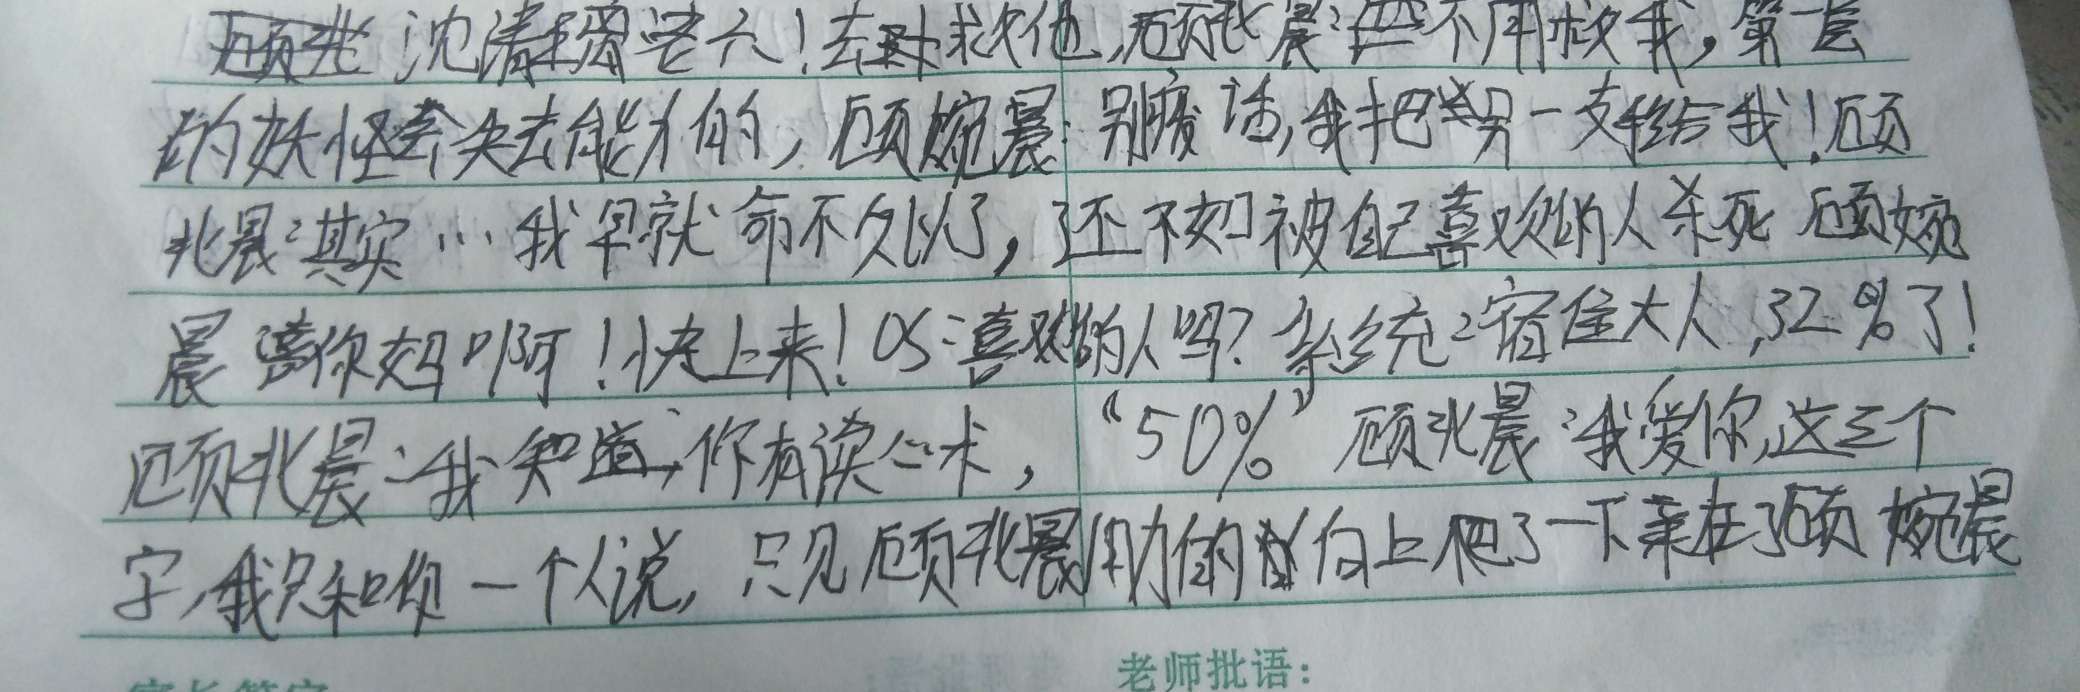 沈清瑶老六！去救他，顾北晨：不用救我，第一层
的妖怪会失去能力的，顾婉晨：别废话，我把另一支给我！顾
北晨：其实…我早就命不久以了，还不如被自己喜欢的人杀死 顾婉
晨 你妈啊！快上来！OS：喜欢的人吗？系统：宿住大人，32%了！
顾北晨：我知道，你有读心术，“50%”顾北晨：我爱你，这三个
字，我只和你一个人说，只见顾北晨用力的向上爬了一下亲在了顾婉晨
老师批语：